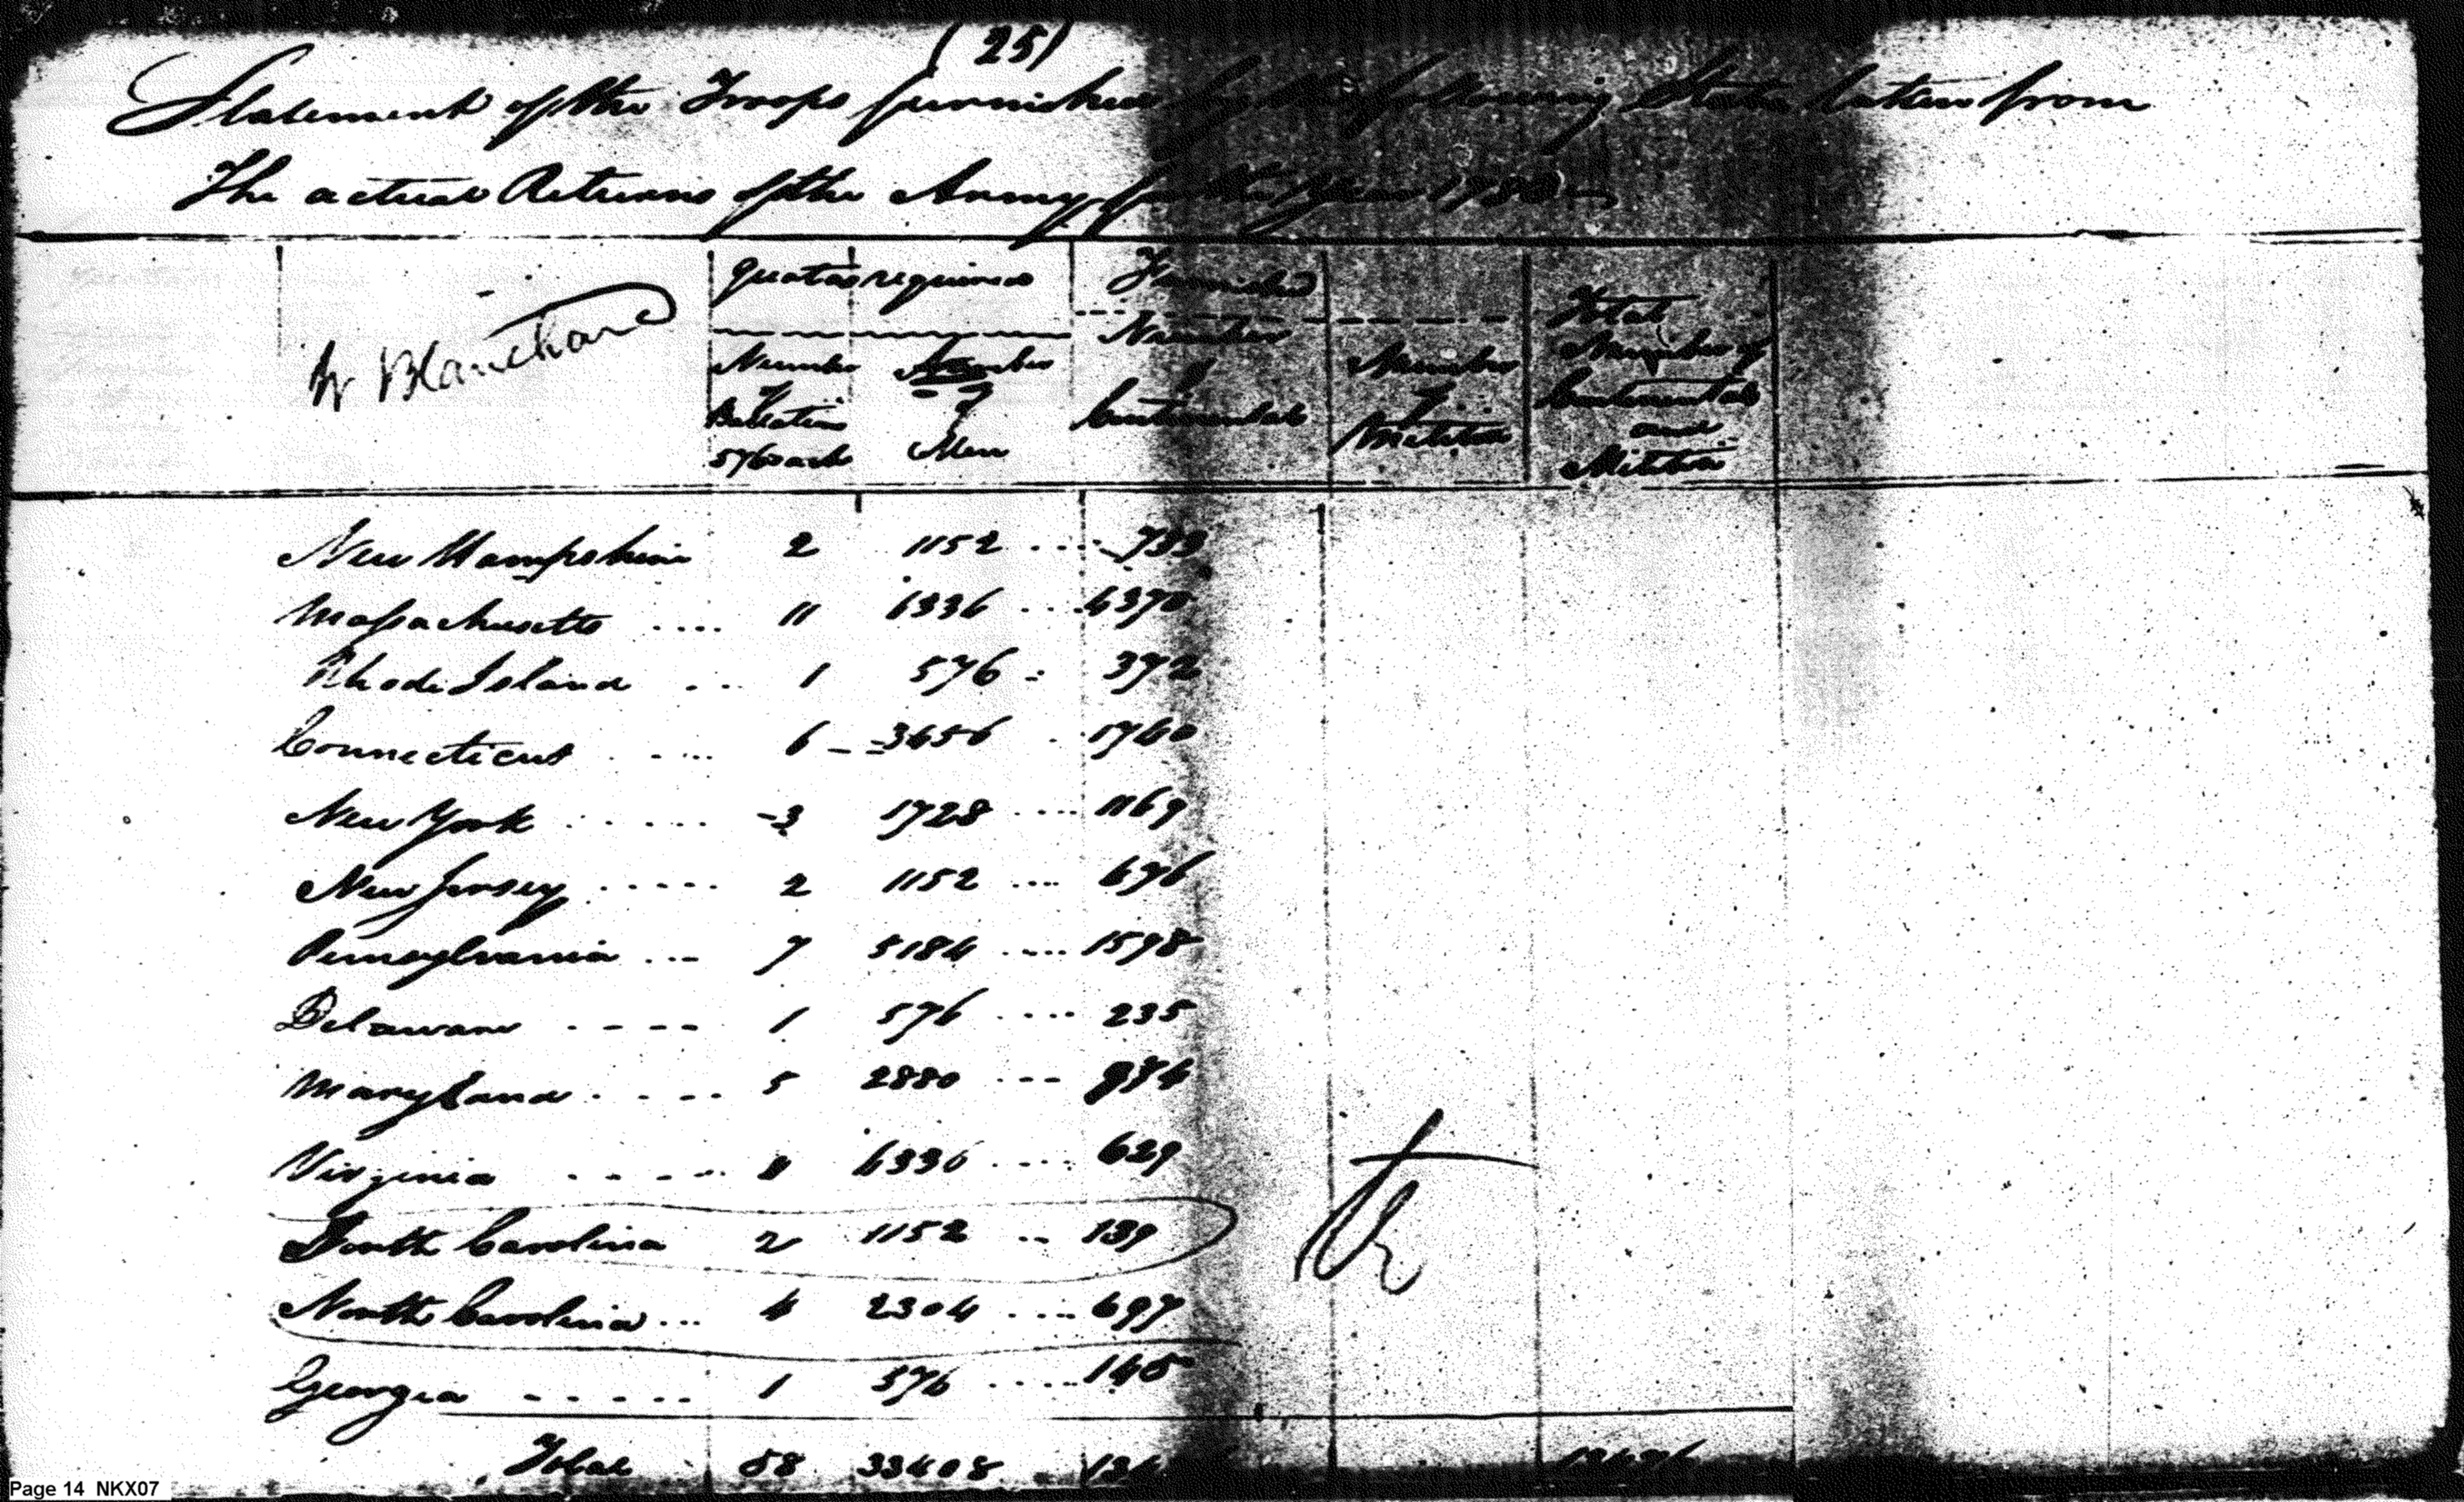 (25)
Statement of the Troops furnished by the following States taken from
The actual Returns of the Army for the Year 1783
Blanchard
quotas required
Furnished
Number of Battalions 576 each
Number of Men
Number of Continentals
Number of Militia
Total Number of Continentals and Militia
New Hampshire 2 1152 .... 733
Massachusetts .... 11 6336 ... 4370
Rhode Island ... 1 576 : 372
Connecticut ..... 6 -- 3456 .. 1740
New York ...... 3 1728 .... 1169
New Jersey ..... 2 1152 .... 676
Pennsylvania ... 7 5184 .... 1598
Delaware ---- 1 576 .... 235
Maryland .---. 5 2880 --- 974
Virginia ----- 11 6336 .... 629
South Carolina 2 1152 .. 139
North Carolina ... 4 2304 .... 697
Georgia ----- 1 576 .... 145
Total 58 33408
Page 14 NKX07